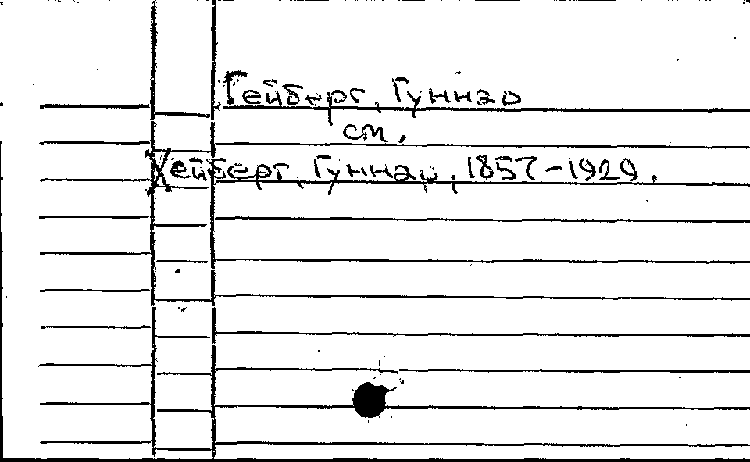 Гейберг, Гуннар
см.
Хейберг, Гуннар, 1857-1929.